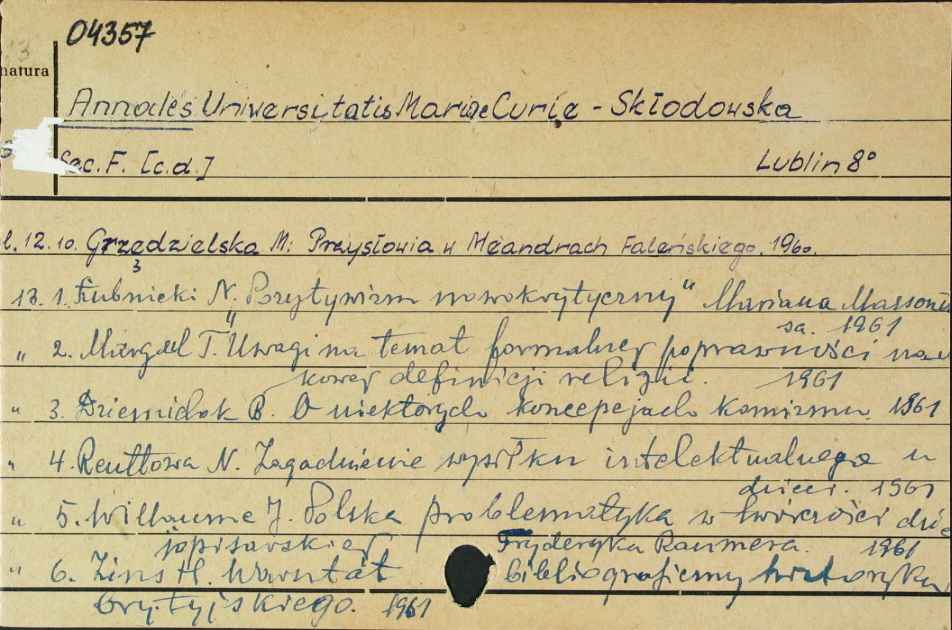 04357
natura
Annales Universitatis Mariae Curie - Skłodowska
Sec. F. [c.d.]
Lublin 8°
l. 12. 10. Grzędzielska M: Przysłowia w Meandrach Faleńskiego. 1960.
13. 1. Łubnicki N. "Pozytywizm nowokrytyczny" Mariana Massoniu
sa. 1961
" 2. Margael T. Uwagi na temat formalnej poprawności nau
kowej definicji religii. 1961
" 3. Dziemidok B. O niektórych koncepcjach komizmu. 1961
" 4. Reuttowa N. Zagadnienie wysiłku intelektualnego u
dzieci. 1961
" 5. Willaume J. Polska problematyka w twórczości dzie
jopisarskiej Fryderyka Raumera. 1961
" 6. Zins H. Warsztat bibliograficzny historyka
brytyjskiego. 1961